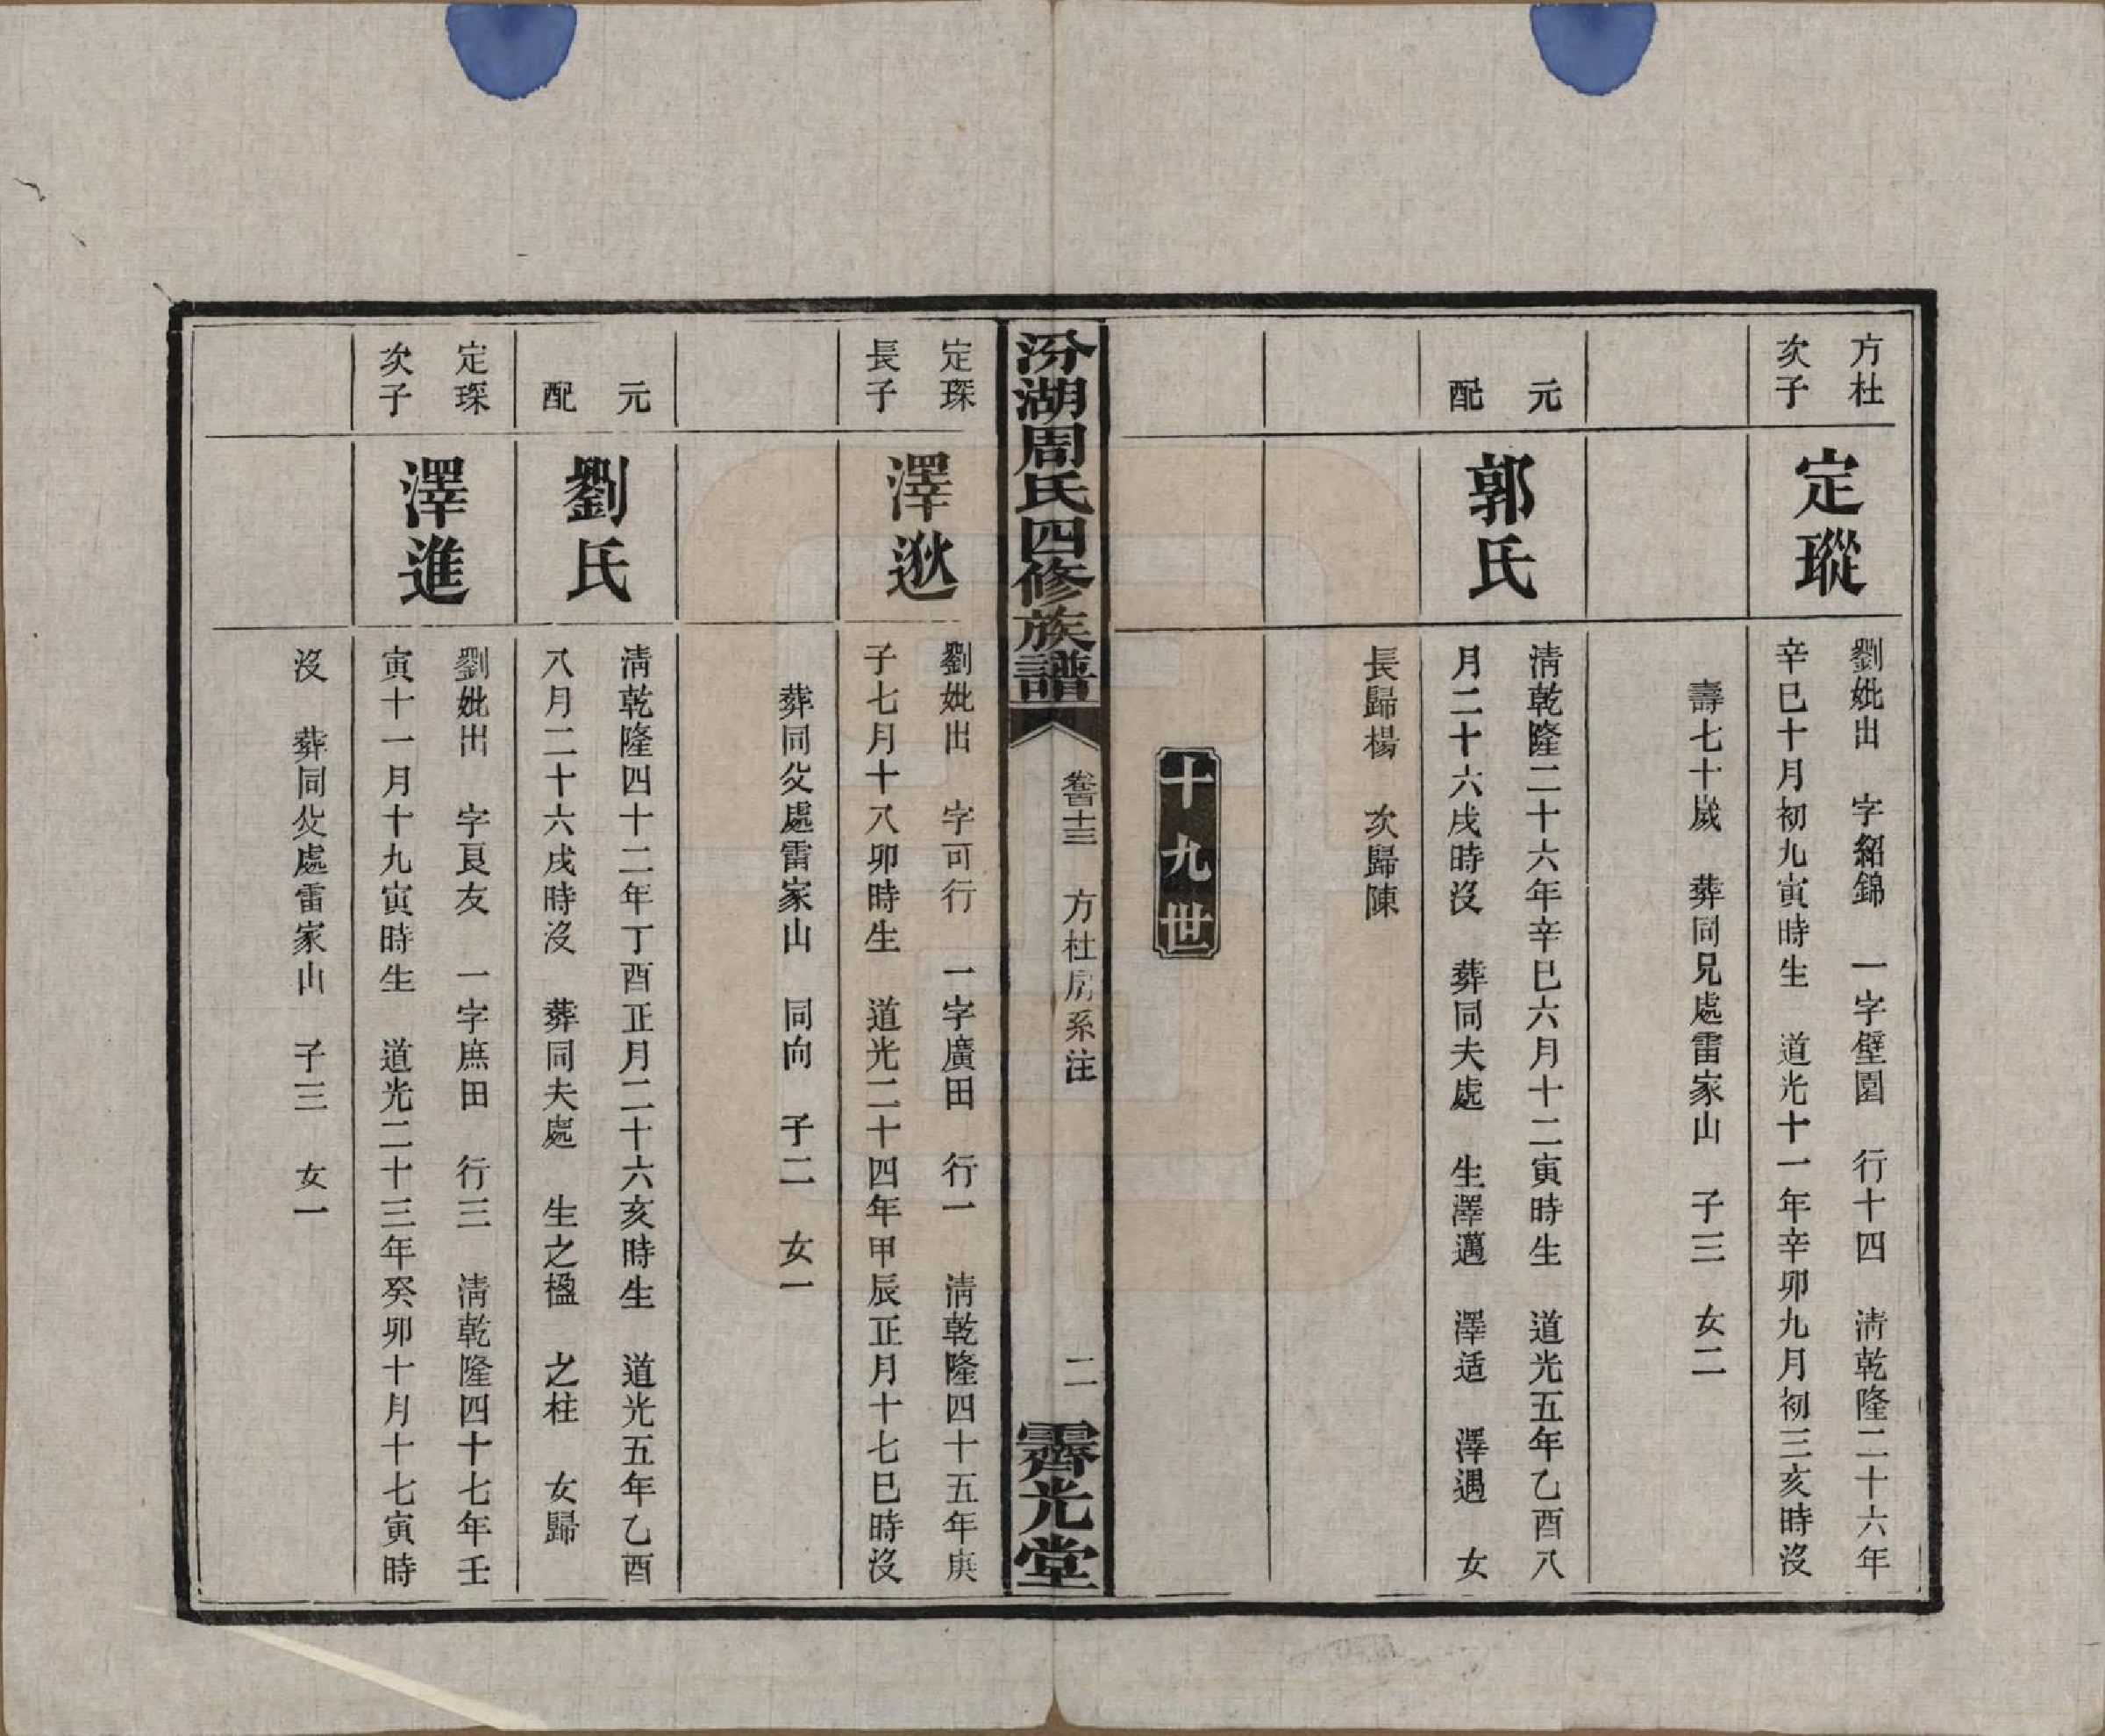 方杜
次子
定瑽
劉妣出　字紹錦　一字壁園　行十四　清乾隆二十六年
辛巳十月初九寅時生　道光十一年辛卯九月初三亥時沒
壽七十歲　葬同兄處雷家山　子三　女二
元
配
郭氏
清乾隆二十六年辛巳六月十二寅時生　道光五年乙酉八
月二十六戌時沒　葬同夫處　生澤邁　澤适　澤遇　女
長歸楊　次歸陳
十九世
汾湖周氏四修族譜
卷百十三　方杜房系注
二
霽光堂
定琛
長子
澤逖
劉妣出　字可行　一字廣田　行一　清乾隆四十五年庚
子七月十八卯時生　道光二十四年甲辰正月十七巳時沒
葬同父處雷家山　同向　子二　女一
元
配
劉氏
清乾隆四十二年丁酉正月二十六亥時生　道光五年乙酉
八月二十六戌時沒　葬同夫處　生之楹　之柱　女歸
定琛
次子
澤進
劉妣出　字良友　一字庶田　行三　清乾隆四十七年壬
寅十一月十九寅時生　道光二十三年癸卯十月十七寅時
沒　葬同父處雷家山　子三　女一